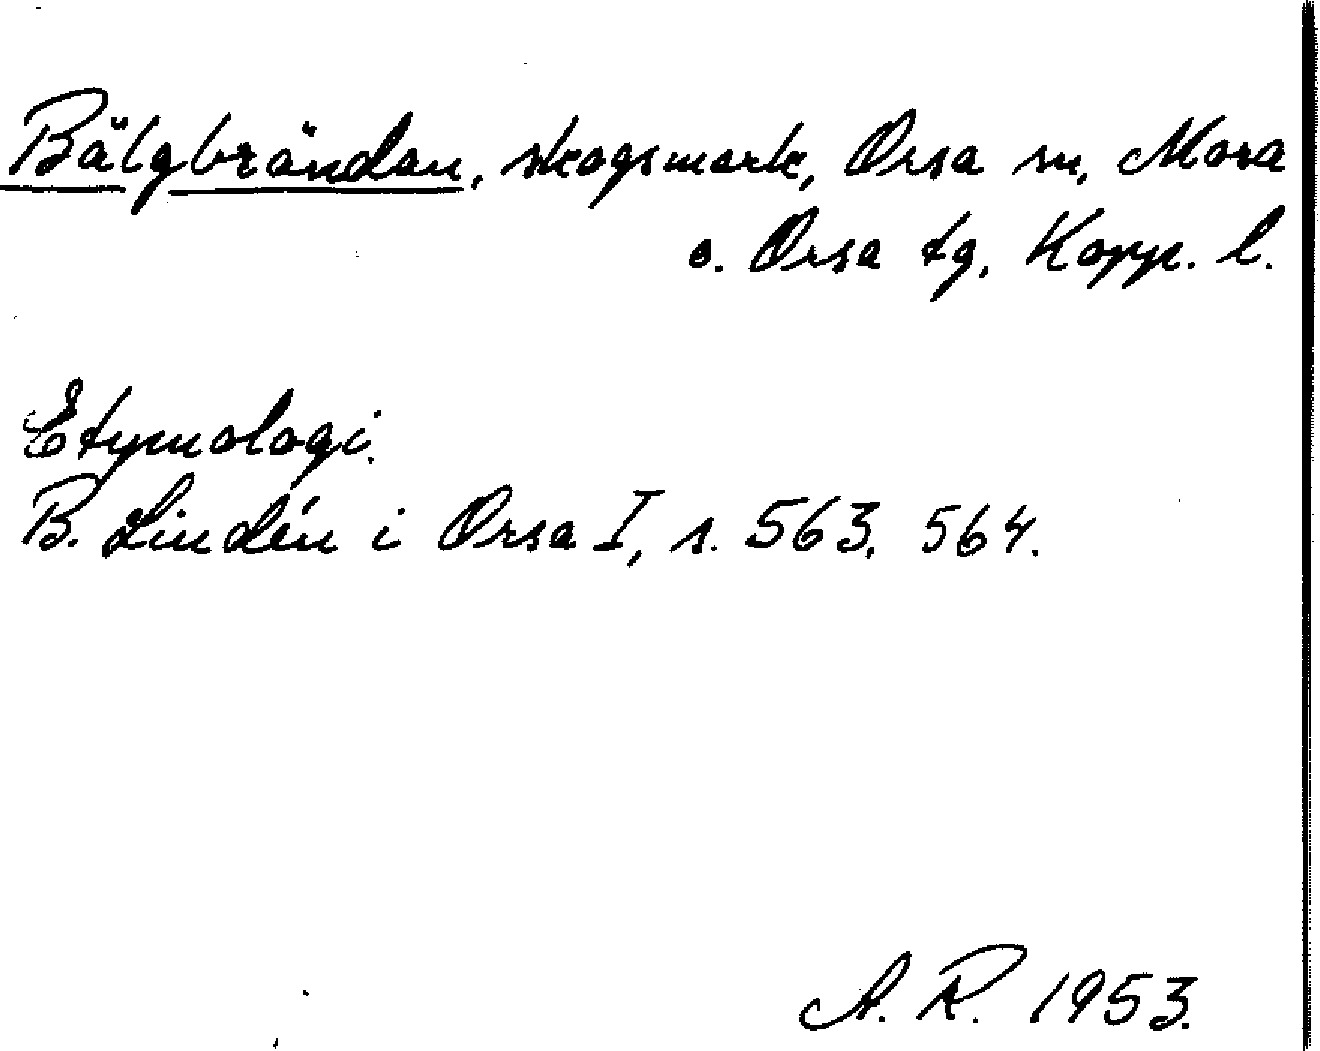 Bälgbrändan, skogsmark, Orsa sn, Mora
o. Orsa tg, Kopp. l.
Etymologi.
B. Lindén i Orsa I, s. 563, 564.
A. R. 1953.